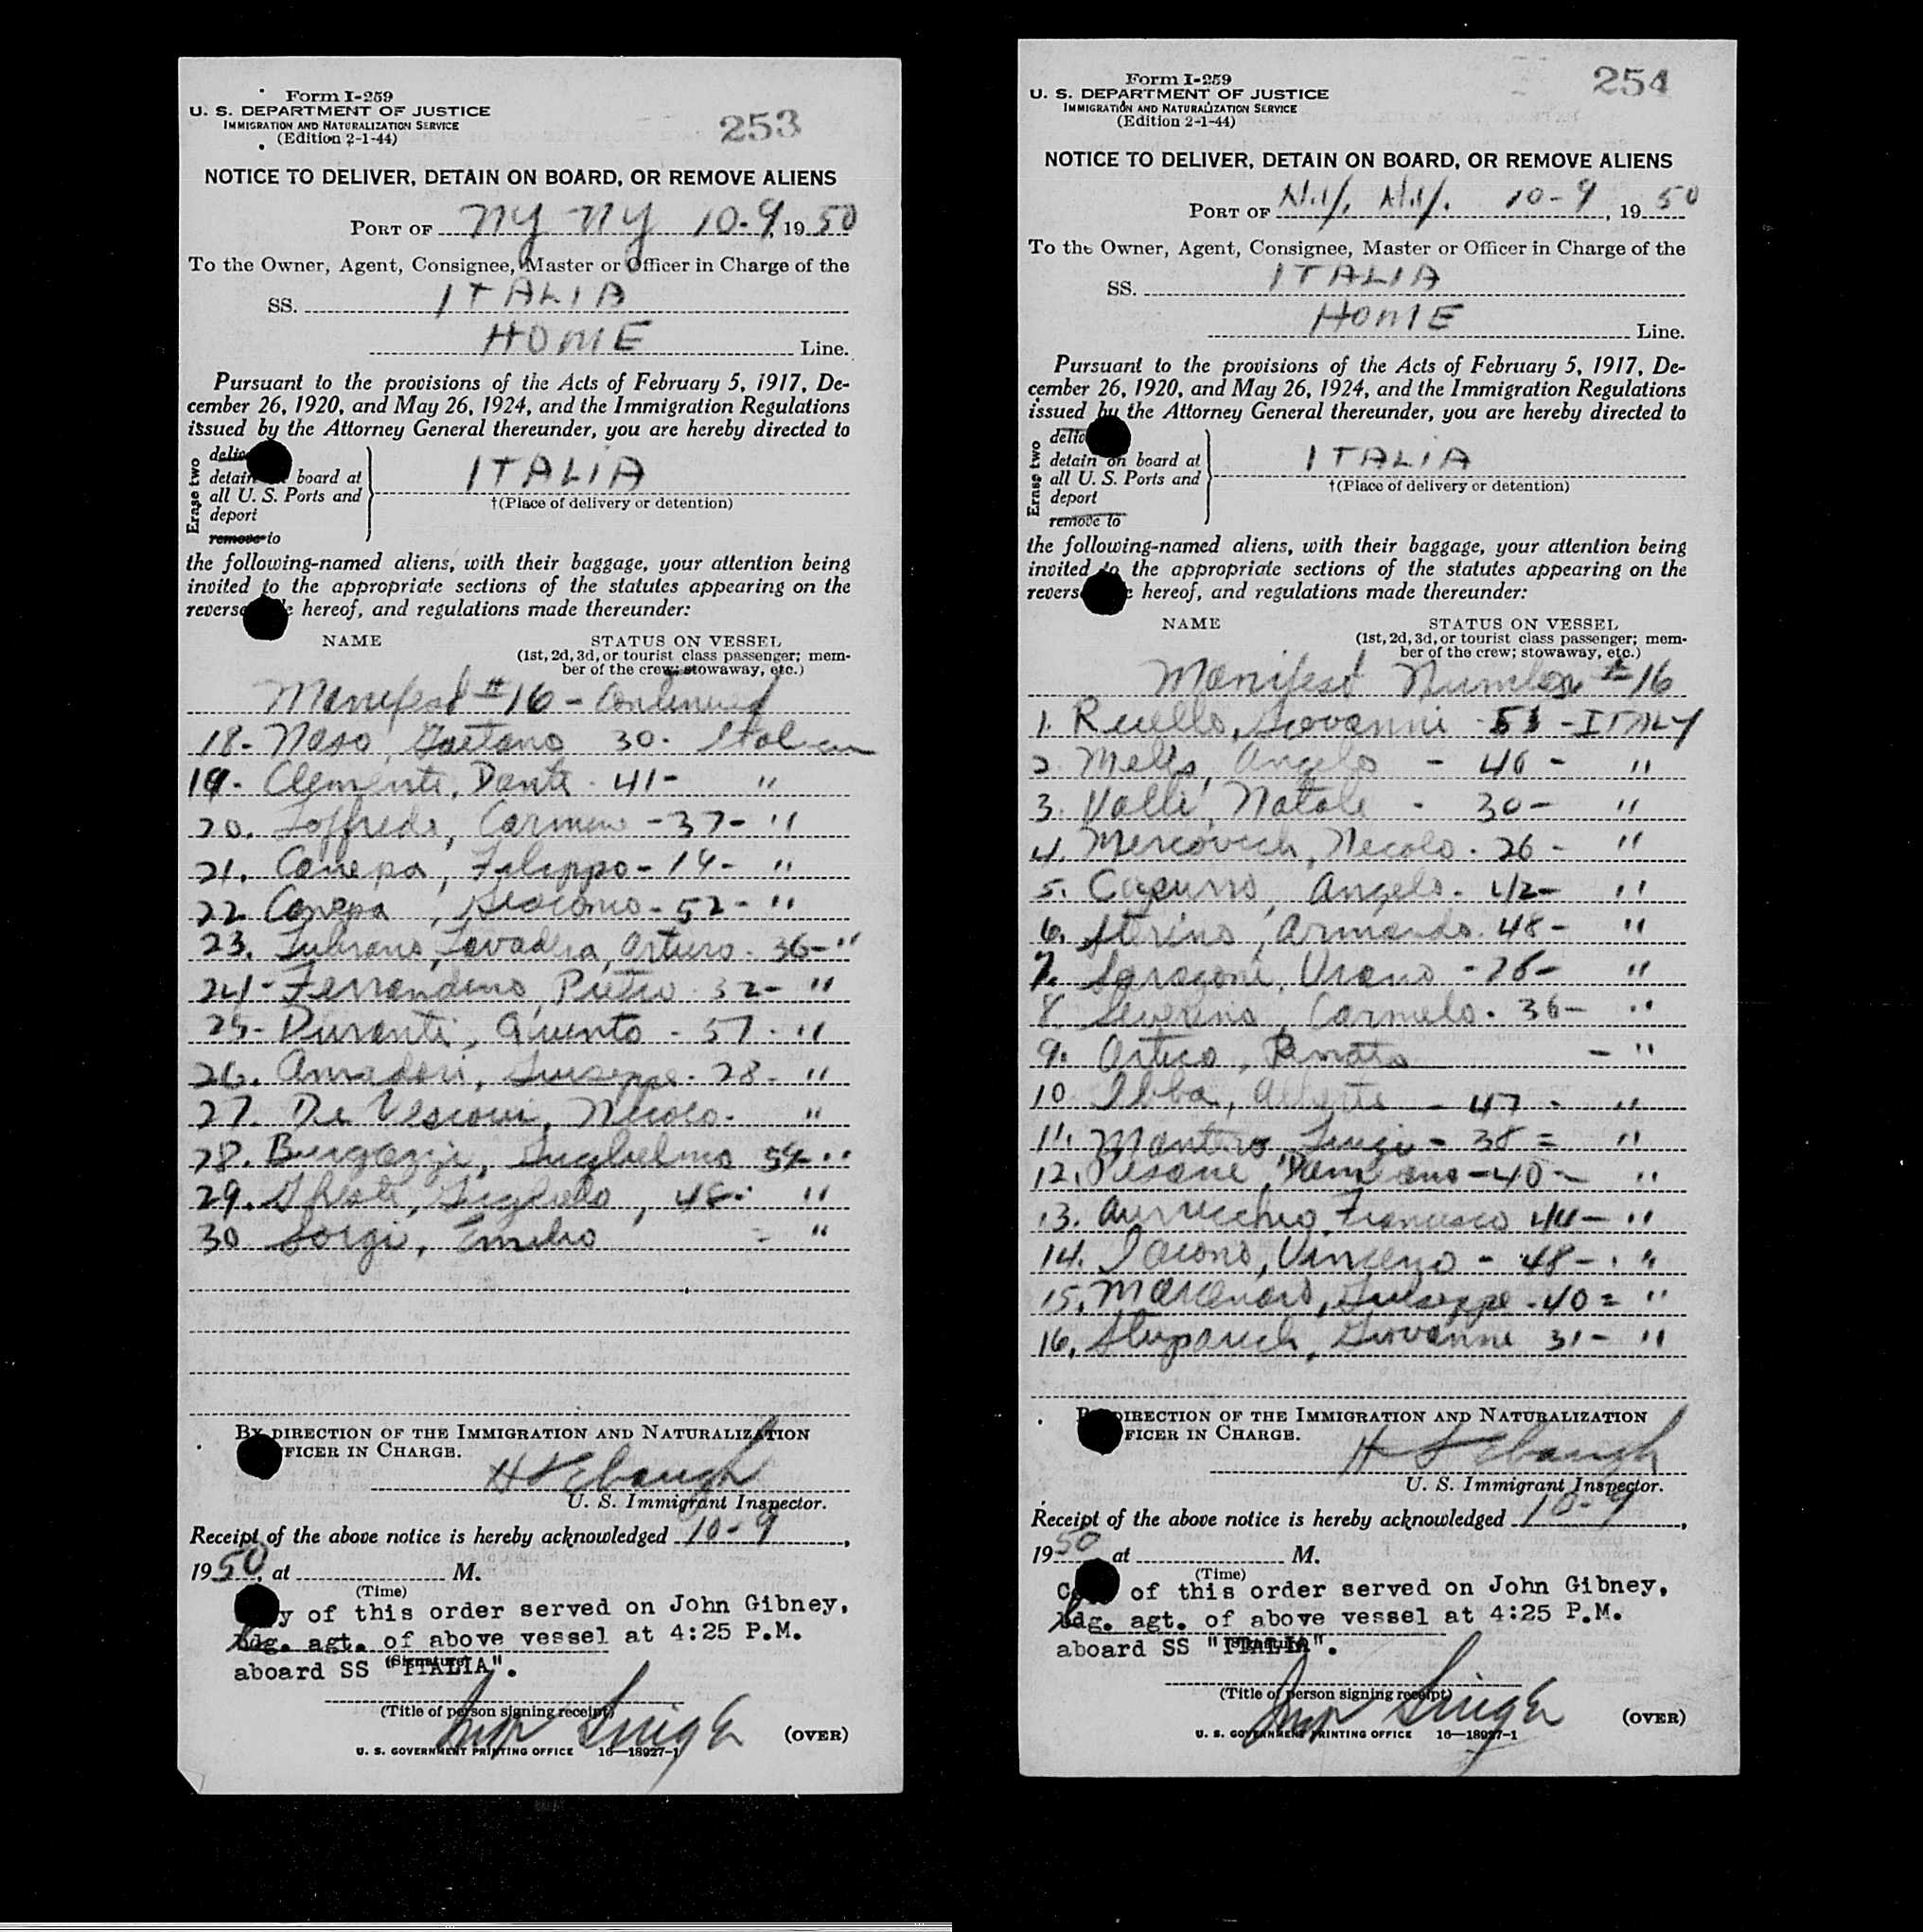 Form I-259
U. S. DEPARTMENT OF JUSTICE
IMMIGRATION AND NATURALIZATION SERVICE
(Edition 2-1-44)
253
NOTICE TO DELIVER, DETAIN ON BOARD, OR REMOVE ALIENS
PORT OF NY NY 10-9, 1950
To the Owner, Agent, Consignee, Master or Officer in Charge of the
SS. ITALIA
HOME Line.
Pursuant to the provisions of the Acts of February 5, 1917, De-
cember 26, 1920, and May 26, 1924, and the Immigration Regulations
issued by the Attorney General thereunder, you are hereby directed to
Erase two
detain board at
all U. S. Ports and
deport
remove to
ITALIA
†(Place of delivery or detention)
the following-named aliens, with their baggage, your attention being
invited to the appropriate sections of the statutes appearing on the
hereof, and regulations made thereunder:
NAME STATUS ON VESSEL
(1st, 2d, 3d, or tourist class passenger; mem-
ber of the crew; stowaway, etc.)
Manifest #16 - Continued
18- Naso, Gaetano 30- Italian
19- Clemente, Dante - 41- "
20. Loffredo, Carmine - 37- "
21. Canepa, Filippo - 19- "
22 Canepa, Giacomo - 52- "
23. Lubrano, Lavadera, Arturo - 36- "
24- Ferrandino, Pietro - 32- "
25- Duranti, Quinto - 57- "
26. Amadori, Giuseppe - 28- "
27. De Vescovi, Nicolo- "
28. Guglielmo 54- "
29. 48- "
30 Sorgi, Emilio - "
BY DIRECTION OF THE IMMIGRATION AND NATURALIZATION
FICER IN CHARGE.
H S Ebaugh
U. S. Immigrant Inspector.
Receipt of the above notice is hereby acknowledged 10-9,
1950, at M.
(Time)
y of this order served on John Gibney,
bdg. agt. of above vessel at 4:25 P.M.
(Signature)
aboard SS "ITALIA".
(Title of person signing receipt)
(OVER)
U. S. GOVERNMENT PRINTING OFFICE 16—18927-1
Form I-259
U. S. DEPARTMENT OF JUSTICE
IMMIGRATION AND NATURALIZATION SERVICE
(Edition 2-1-44)
254
NOTICE TO DELIVER, DETAIN ON BOARD, OR REMOVE ALIENS
PORT OF N.Y. N.Y. 10-9, 1950
To the Owner, Agent, Consignee, Master or Officer in Charge of the
SS. ITALIA
HOME Line.
Pursuant to the provisions of the Acts of February 5, 1917, De-
cember 26, 1920, and May 26, 1924, and the Immigration Regulations
issued by the Attorney General thereunder, you are hereby directed to
Erase two
detain on board at
all U. S. Ports and
deport
remove to
ITALIA
†(Place of delivery or detention)
the following-named aliens, with their baggage, your attention being
invited to the appropriate sections of the statutes appearing on the
hereof, and regulations made thereunder:
NAME STATUS ON VESSEL
(1st, 2d, 3d, or tourist class passenger; mem-
ber of the crew; stowaway, etc.)
Manifest Number #16
1. Giovanni - 53 - ITALY
2. Angelo - 40 - "
3. Valle, Natale - 30- "
4. Mercovich, Necolo - 26 - "
5. Capurro, Angelo - 42- "
6. Sterino, Armando - 48- "
7. Saragoni, Urano - 26- "
8. Severino, Carmelo - 36- "
9. Artico, Renato - "
10 Ibba, - 47 - "
11. Luigi - 38 = "
12. Pisane, Damiano - 40- "
13. Auricchio, Francesco 44- "
14. Iacono, Vincenzo - 48- "
15. Marcenaro, Giuseppe - 40 = "
16. Stuparich, Giovanni 31- "
DIRECTION OF THE IMMIGRATION AND NATURALIZATION
FICER IN CHARGE.
H S Ebaugh
U. S. Immigrant Inspector.
Receipt of the above notice is hereby acknowledged 10-9,
1950 at M.
(Time)
of this order served on John Gibney,
bdg. agt. of above vessel at 4:25 P.M.
(Signature)
aboard SS "ITALIA".
(Title of person signing receipt)
(OVER)
U. S. GOVERNMENT PRINTING OFFICE 16—18927-1